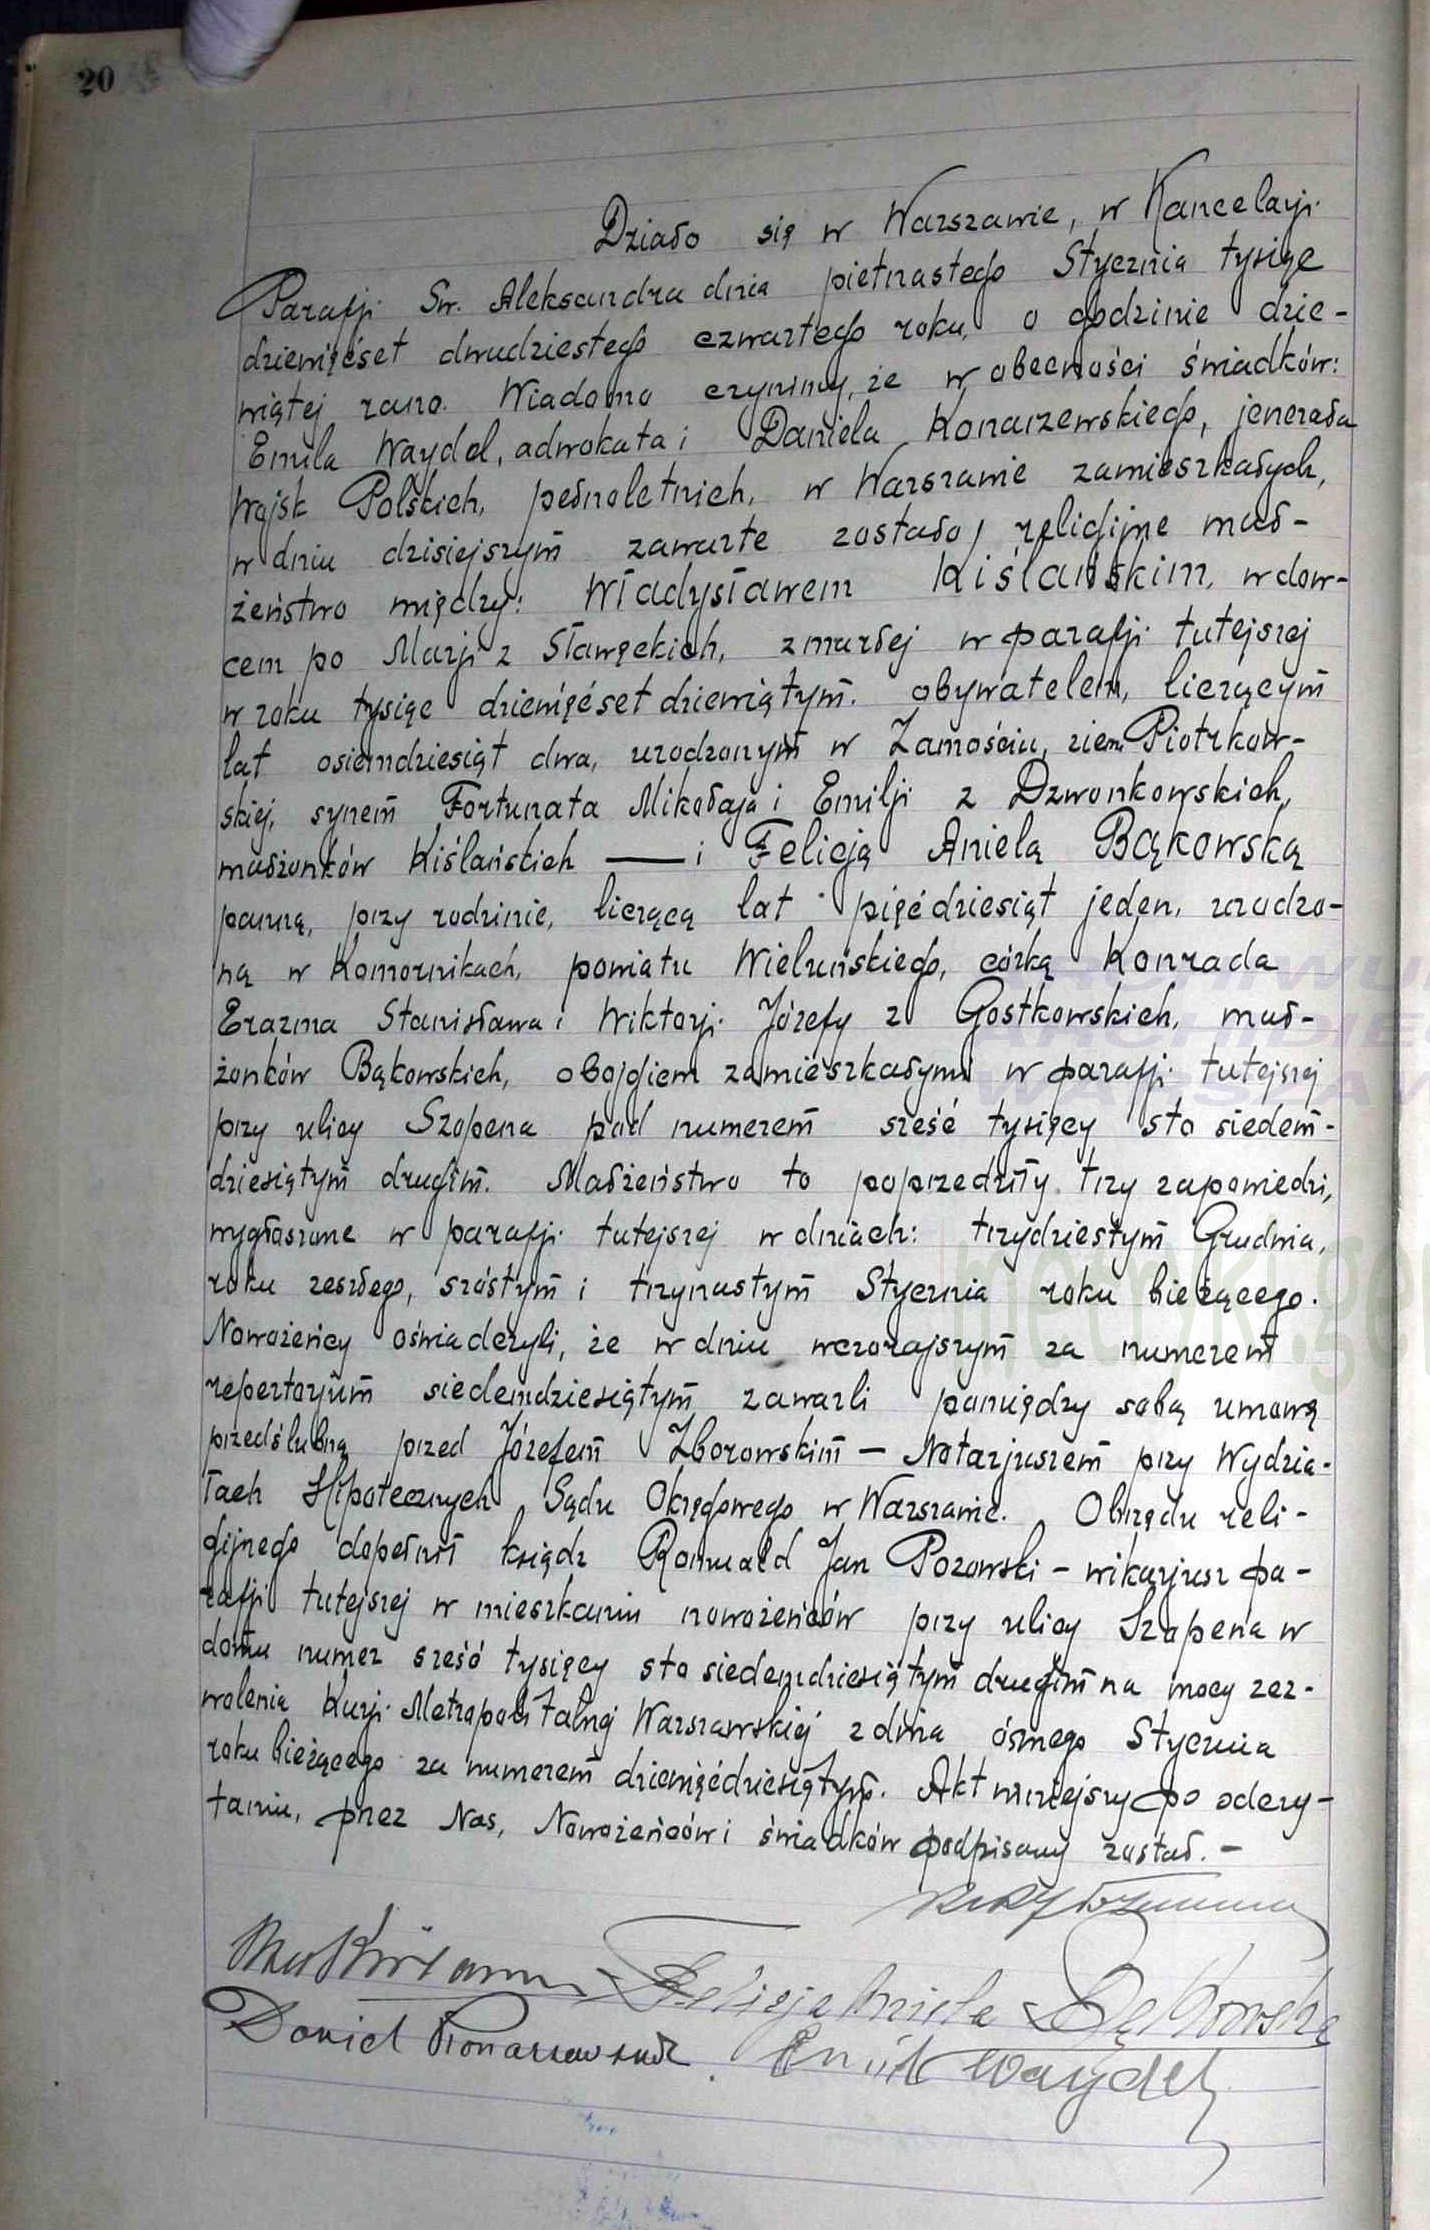 20
Działo się w Warszawie, w Kancelarji
Parafji Św. Aleksandra dnia piętnastego Stycznia tysiąc
dziewięćset dwudziestego czwartego roku, o godzinie dzie-
wiątej rano. Wiadomo czynimy, że w obecności świadków:
Emila Waydel, adwokata i Daniela Konarzewskiego, jenerała
Wojsk Polskich, pełnoletnich, w Warszawie zamieszkałych,
w dniu dzisiejszym zawarte zostało religijne mał-
żeństwo między: Władysławem Kiślańskim, wdow-
cem po Marji z Sławęckich, zmarłej w parafji tutejszej
w roku tysiąc dziewięćset dziewiątym. obywatelem, liczącym
lat osiemdziesiąt dwa, urodzonym w Zamościu, ziemi Piotrkow-
skiej, synem Fortunata Mikołaja i Emilji z Dzwonkowskich,
małżonków Kiślańskich — i Felicją Anielą Bąkowską
panną, przy rodzinie, liczącą lat pięćdziesiąt jeden, urodzo-
ną w Komornikach, powiatu Wieluńskiego, córką Konrada
Erazma Stanisława i Wiktorji Józefy z Gostkowskich, mał-
żonków Bąkowskich, obojgiem zamieszkałymi w parafji tutejszej
przy ulicy Szopena pod numerem sześć tysięcy sto siedem-
dziesiątym drugim. Małżeństwo to poprzedziły trzy zapowiedzi,
wygłoszone w parafji tutejszej w dniach: trzydziestym Grudnia,
roku zeszłego, szóstym i trzynastym Stycznia roku bieżącego.
Nowożeńcy oświadczyli, że w dniu wczorajszym za numerem
repertorjum siedemdziesiątym zawarli pomiędzy sobą umowę
przedślubną przed Józefem Zborowskim — Notarjuszem przy Wydzia-
łach Hipotecznych Sądu Okręgowego w Warszawie. Obrzędu reli-
gijnego dopełnił ksiądz Romuald Jan Pozowski – wikarjusz pa-
rafji tutejszej w mieszkaniu nowożeńców przy ulicy Szopena w
domu numer sześć tysięcy sto siedemdziesiątym drugim na mocy zez-
wolenia Kurji Metropolitalnej Warszawskiej z dnia ósmego Stycznia
roku bieżącego za numerem dziewięćdziesiątym. Akt niniejszy po odczy-
taniu, przez Nas, Nowożeńców i świadków podpisany został. –
Felicja Aniela Bąkowska
Daniel Konarzewski. Emil Waydel